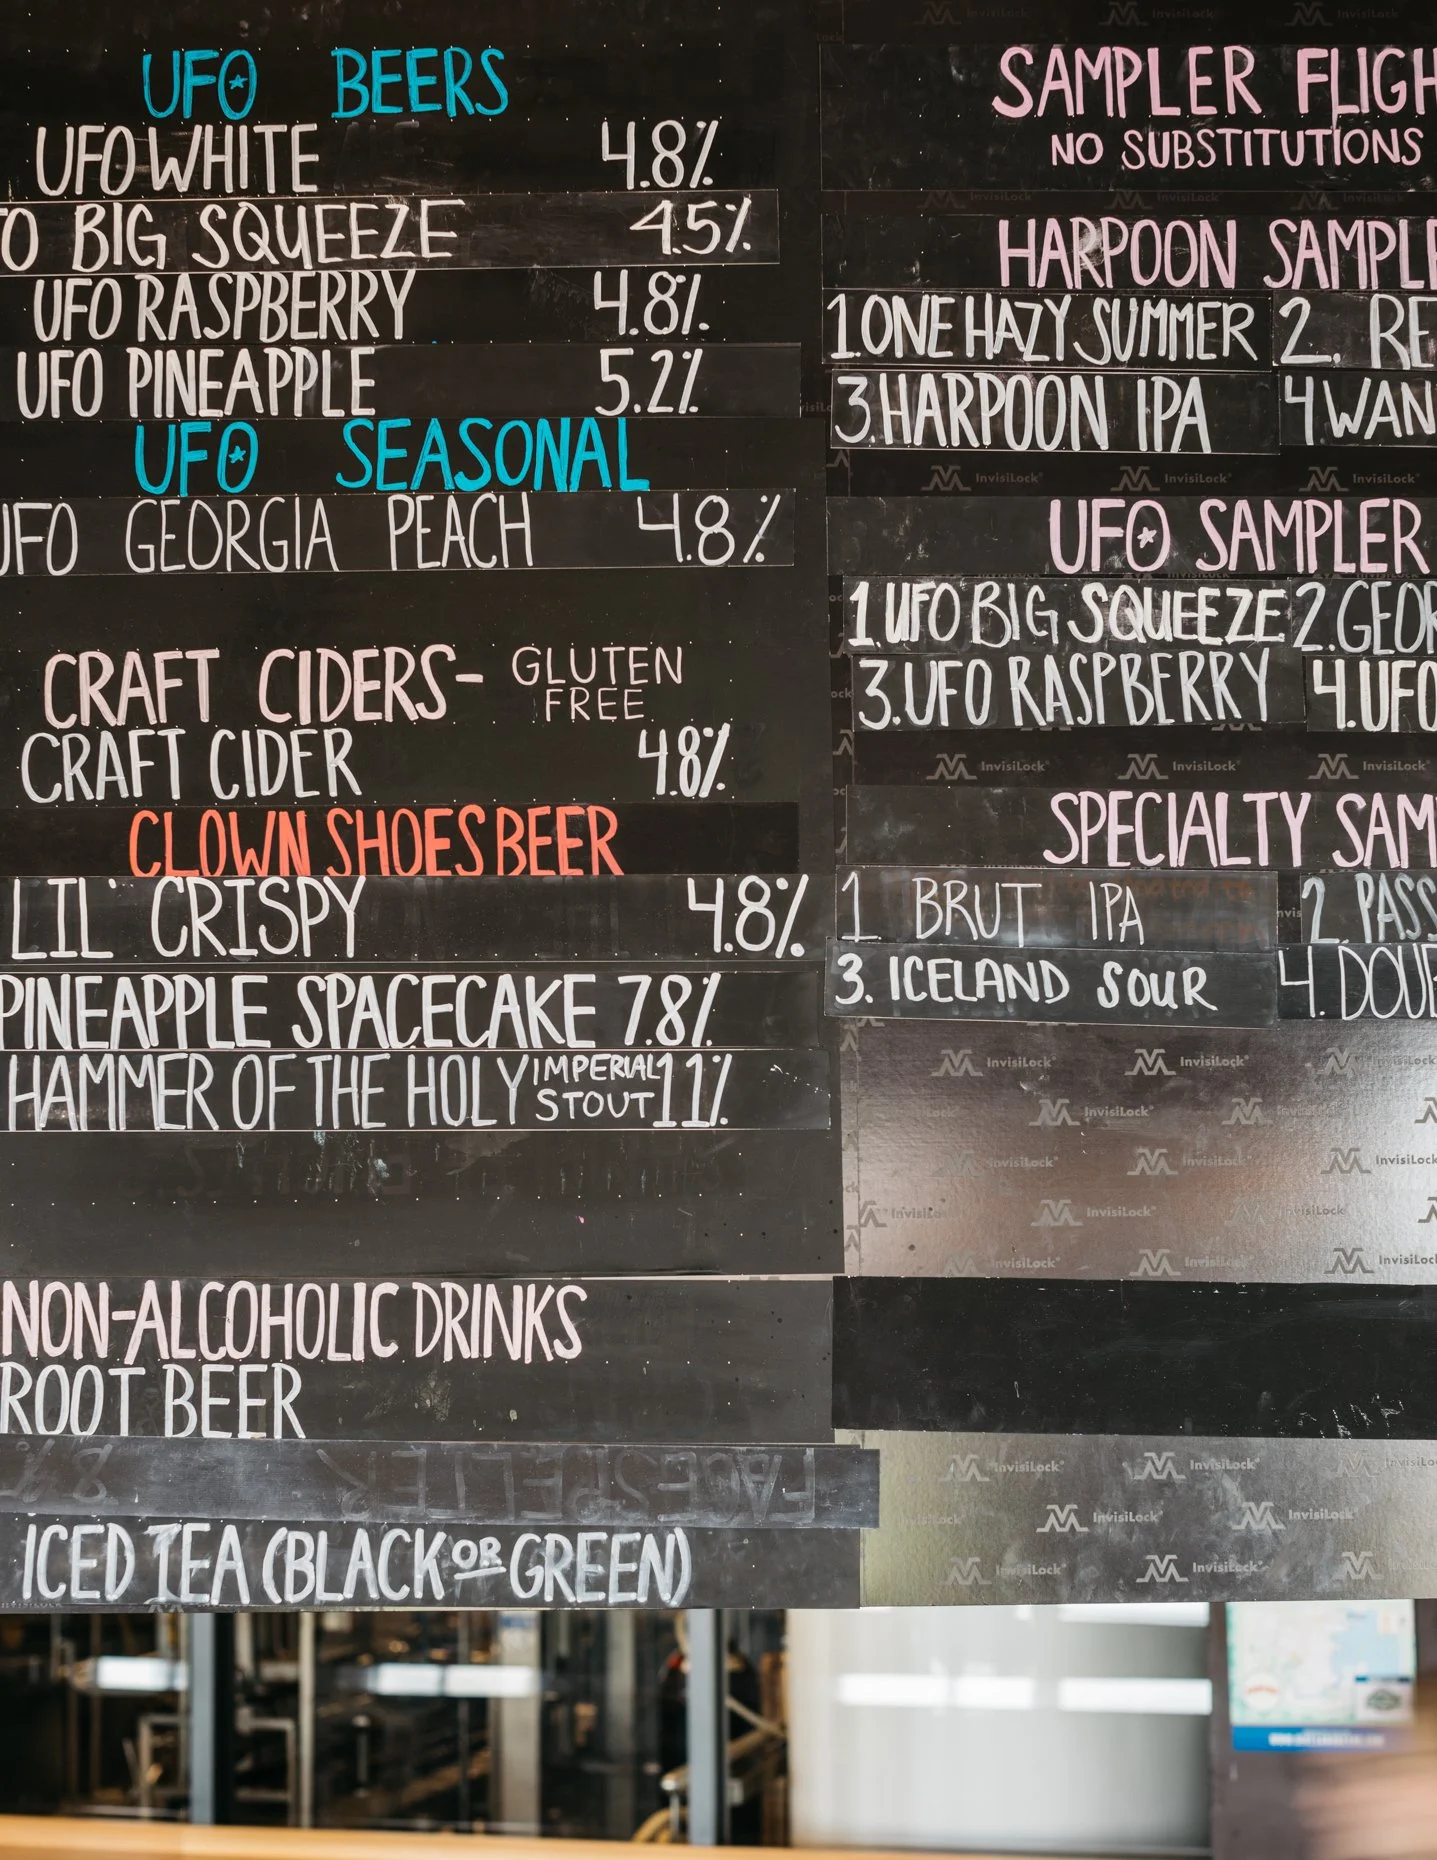 UFO BEERS
UFO WHITE 4.8%
BIG SQUEEZE 4.5%
UFO RASPBERRY 4.8%
UFO PINEAPPLE 5.2%
UFO SEASONAL
UFO GEORGIA PEACH 4.8%
CRAFT CIDERS- GLUTEN FREE
CRAFT CIDER 4.8%
CLOWN SHOES BEER
LIL' CRISPY 4.8%
PINEAPPLE SPACECAKE 7.8%
HAMMER OF THE HOLY IMPERIAL STOUT 11%
NON-ALCOHOLIC DRINKS
ROOT BEER
ICED TEA (BLACK OR GREEN)
SAMPLER FLIGH
NO SUBSTITUTIONS
HARPOON SAMPLE
1. ONE HAZY SUMMER 2. RE
3. HARPOON IPA 4 WAN
InvisiLock® InvisiLock® InvisiLock®
UFO SAMPLER
1. UFO BIG SQUEEZE 2. GEOR
3. UFO RASPBERRY 4. UFO
InvisiLock® InvisiLock® InvisiLock®
SPECIALTY SAM
1 BRUT IPA 2. PASS
3. ICELAND SOUR 4. DOUB
InvisiLock® InvisiLock® InvisiLock®
InvisiLock® InvisiLock®
InvisiLock® InvisiLock® InvisiLock®
InvisiLock® InvisiLock® InvisiLock®
InvisiLock® InvisiLock® InvisiLock®
InvisiLock® InvisiLock® InvisiLock®
InvisiLock® InvisiLock®
InvisiLock® InvisiLock®